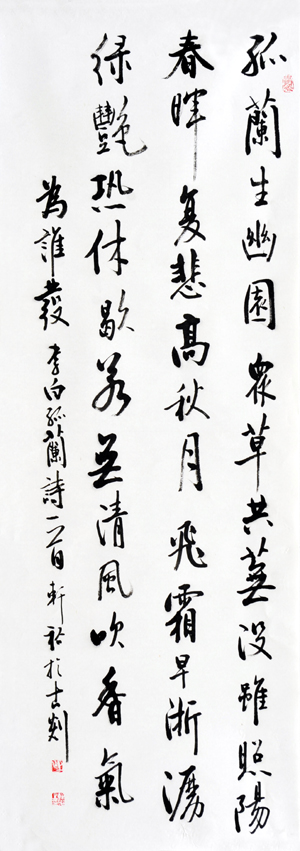 孤蘭生幽園眾草共蕪没雖照陽
春暉复悲高秋月飛霜早淅瀝
绿艷恐休歇若无清風吹香氣
為誰發 李白孤蘭詩一首 軒 於古剡